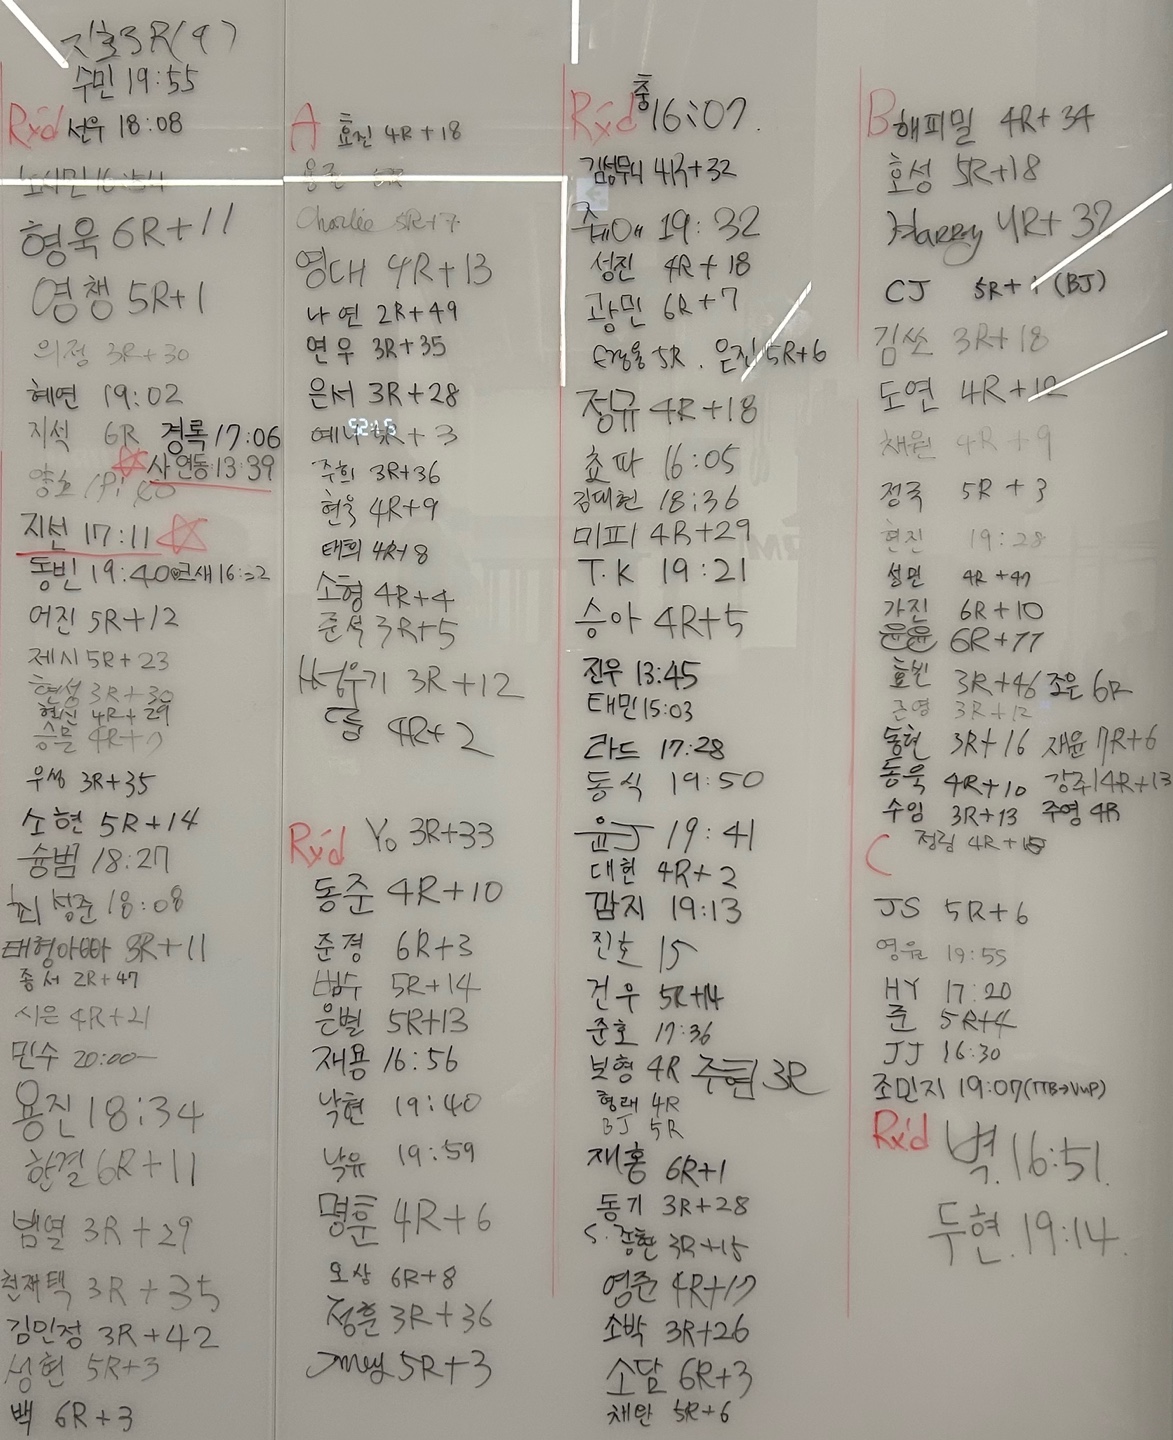 지호 3R(9)
수민 19:55
Rx'd 선우 18:08
노시민 16:54
형욱 6R+11
영챙 5R+1
의정 3R+30
혜연 19:02
지석 6R 경록 17:06
사연동 13:39
양호
지선 17:11
동빈 19:40 므새 16:22
어진 5R+12
제시 5R+23
현성 3R+30
현신 4R+29
승물 4R+7
우성 3R+35
소현 5R+14
슝범 18:27
최성준 18:08
태형아빠 3R+11
종서 2R+47
시은 4R+21
민수 20:00
용진 18:34
한결 6R+11
범열 3R+29
천재택 3R+35
김민정 3R+42
성현 5R+3
백 6R+3
A 효진 4R+18
용준
Charlie 5R+7
영대 4R+13
나연 2R+49
연우 3R+35
은서 3R+28
예나 +3
주희 3R+36
현욱 4R+9
태희 4R+8
소형 4R+4
준석 3R+5
3R+12
4R+2
Rx'd Yo 3R+33
동준 4R+10
준경 6R+3
범수 5R+14
은별 5R+13
재용 16:56
낙현 19:40
낙유 19:59
명훈 4R+6
오상 6R+8
정훈 3R+36
Jmey 5R+3
Rx'd 충 16:07.
김성무니 4R+32
쥬네 19:32
성진 4R+18
광민 6R+7
5R. 은진 5R+6
정규 4R+18
쵸파 16:05
김대현 18:36
미피 4R+29
T.K 19:21
승아 4R+5
진우 13:45
태민 15:03
라드 17:28
동식 19:50
윤J 19:41
대헌 4R+2
깜지 19:13
진호 15
건우 5R+14
준호 17:36
보형 4R 주현 3R
형래 4R
BJ 5R
재홍 6R+1
동기 3R+28
S. 종환 3R+15
영준 4R+17
소박 3R+26
소담 6R+3
채완 5R+6
B 해피밀 4R+34
호성 5R+18
Harry 4R+32
CJ 5R+1 (BJ)
김쏘 3R+18
도연 4R+12
채원 4R+9
정국 5R+3
현진 19:28
성민 4R+47
가진 6R+10
윤윤 6R+77
효빈 3R+46 조은 6R
준영 3R+12
동현 3R+16 재윤 7R+6
동욱 4R+10 강주 4R+13
수임 3R+13 주영 4R
C 정림 4R+15
JS 5R+6
영원 19:55
HY 17:20
준 5R+4
JJ 16:30
조민지 19:07 (TTB→VUP)
Rx'd 벽. 16:51.
두현. 19:14.